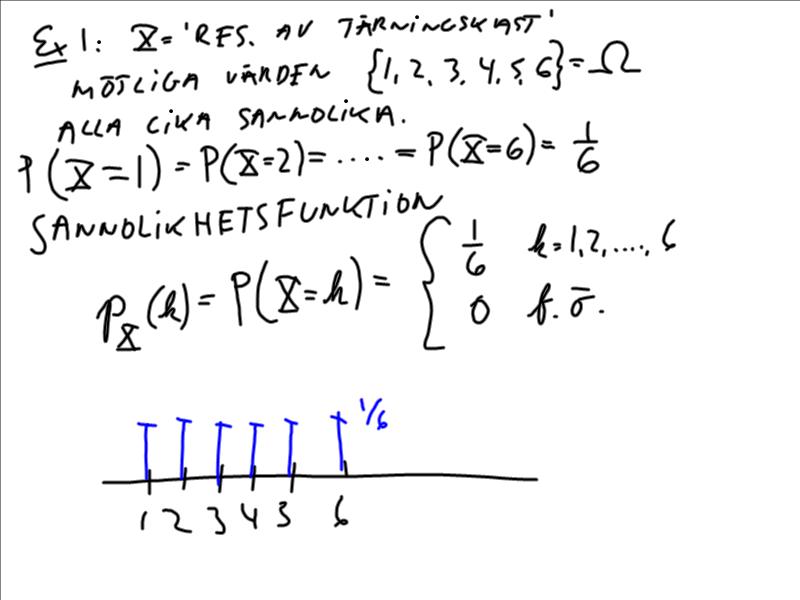 Ex 1: X = 'RES. AV TÄRNINGSKAST'
MÖJLIGA VÄRDEN {1, 2, 3, 4, 5, 6} = Ω
ALLA LIKA SANNOLIKA.
P(X=1) = P(X=2) = .... = P(X=6) = 1/6
SANNOLIKHETSFUNKTION
p_X(k) = P(X=k) = { 1/6 k=1,2,...., 6
0 f.ö.
1/6
1 2 3 4 5 6